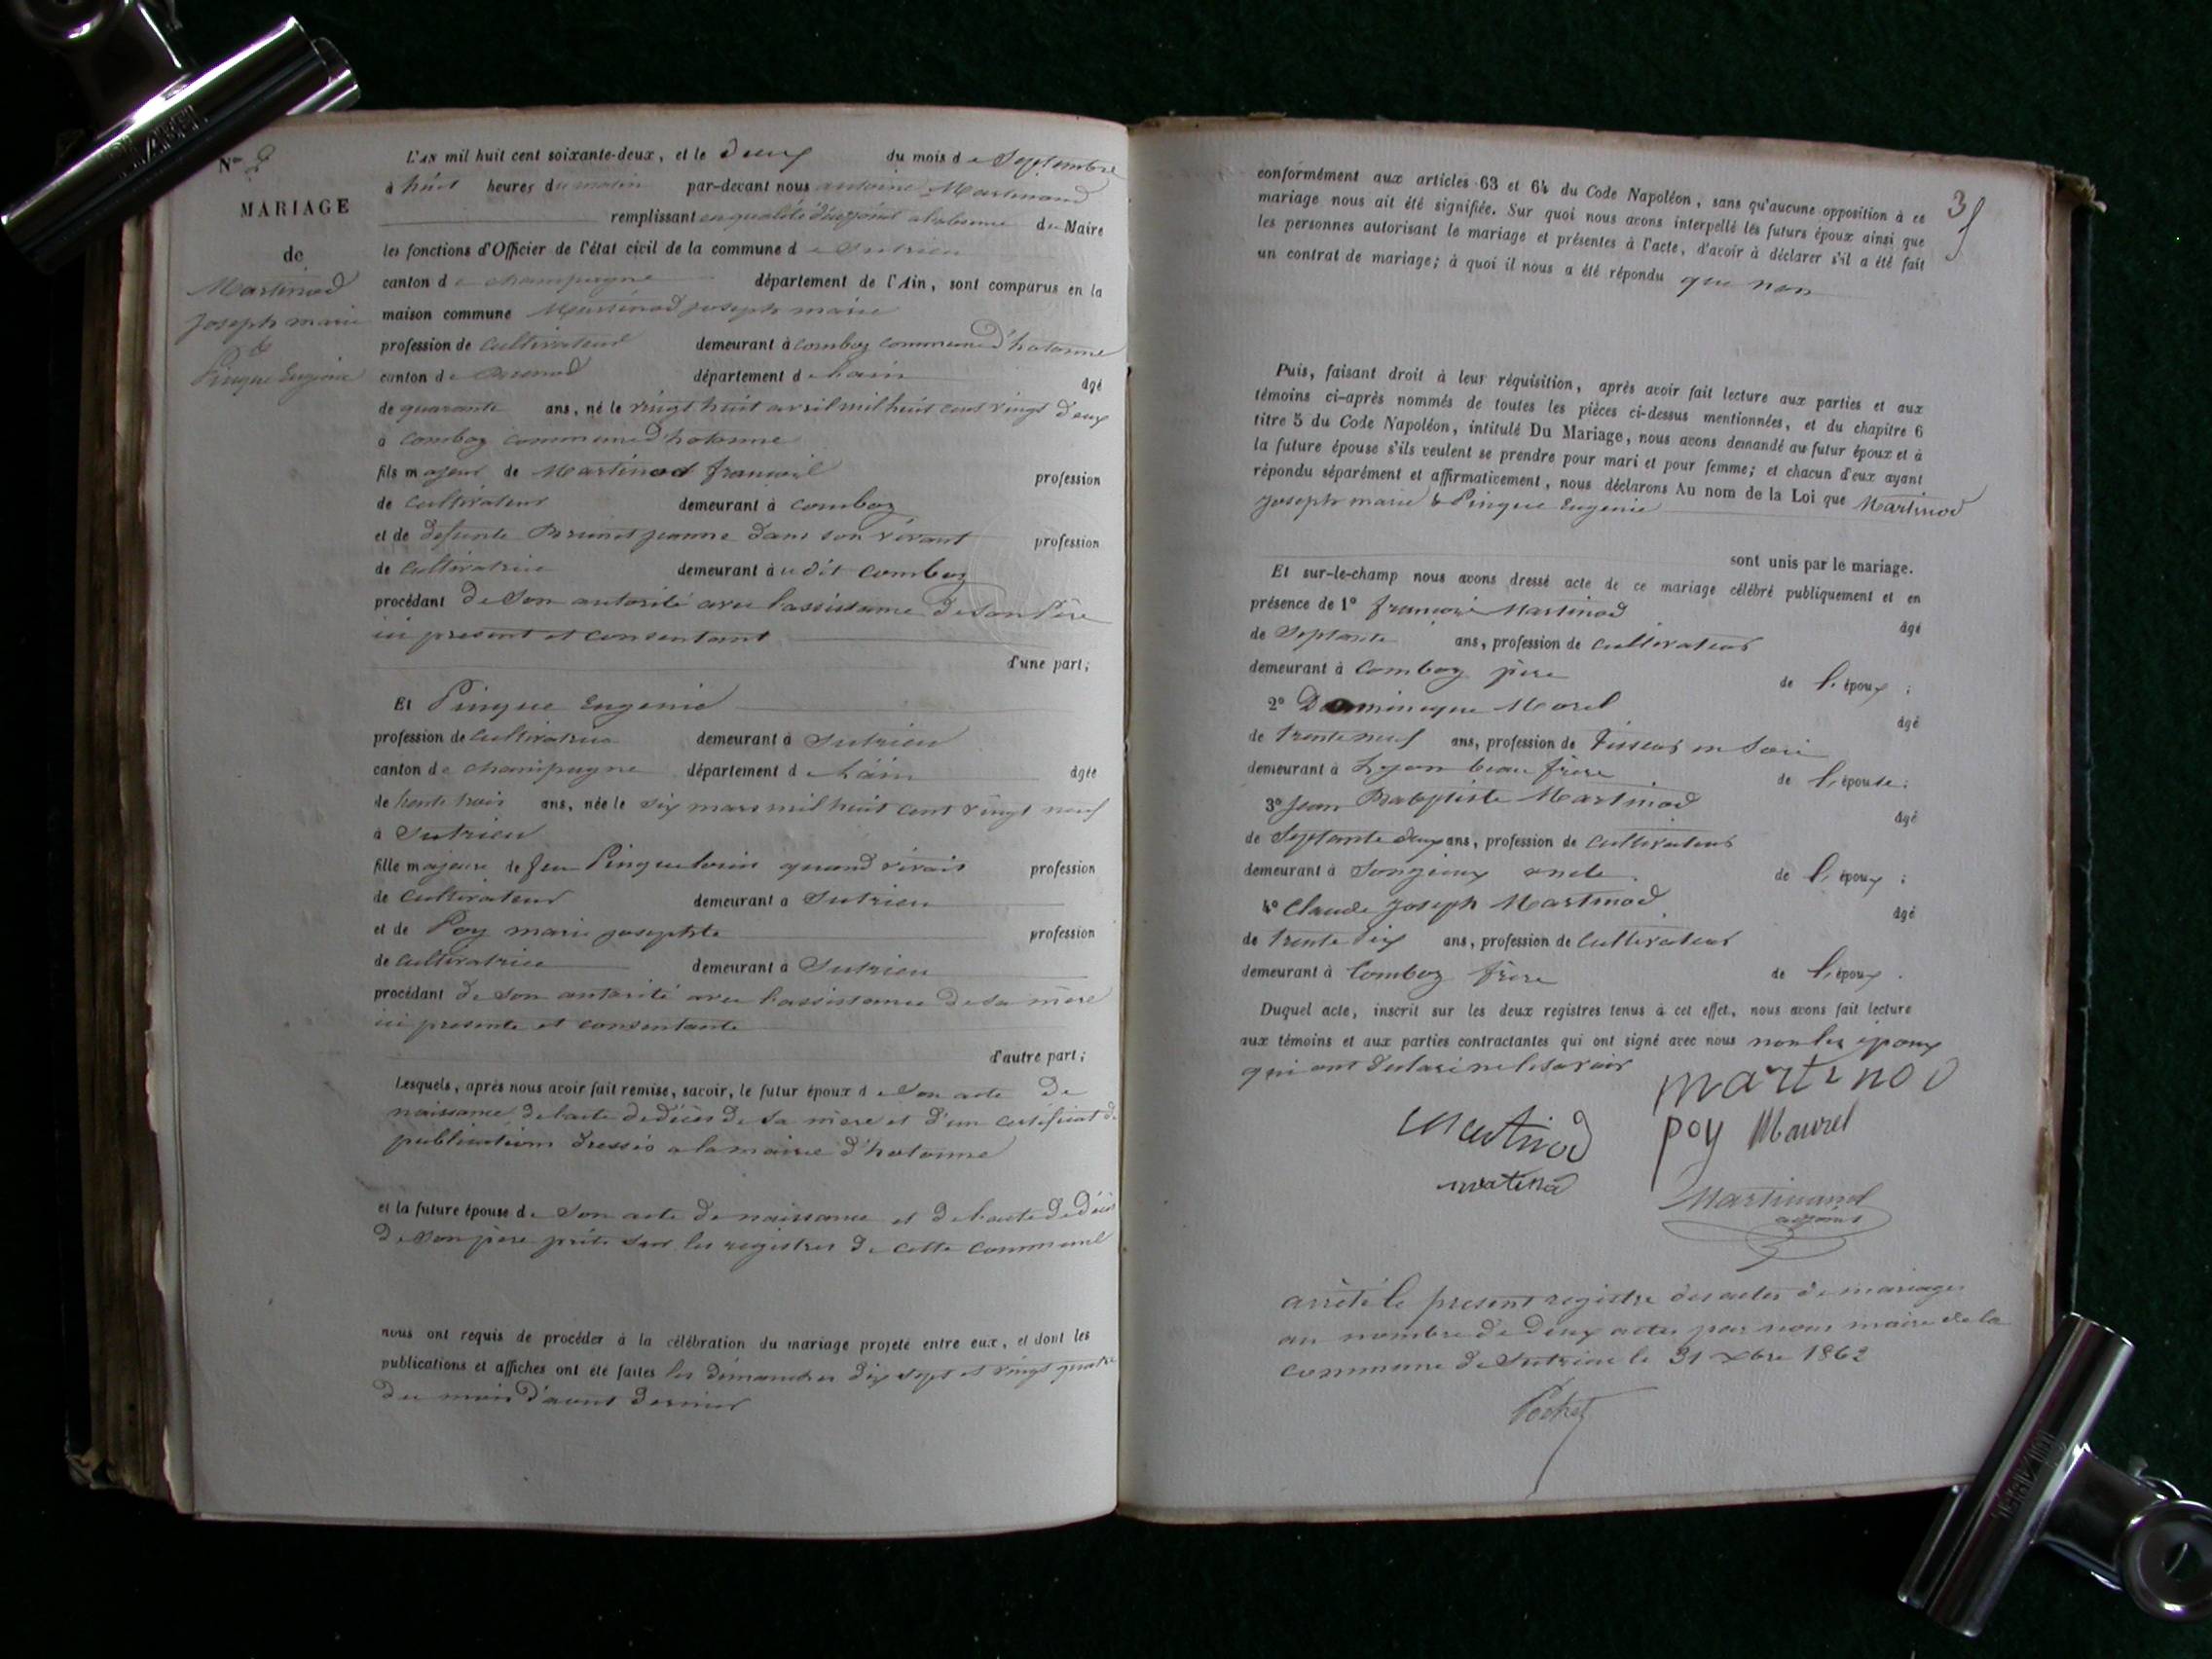 N° 2
MARIAGE
de
Martinod
Joseph marie
&
Pingue Eugenie
L'AN mil huit cent soixante-deux, et le deux du mois de Septembre
à huit heures du matin par-devant nous antoine Martinand
remplissant en qualité d'adjoint a l'absence du Maire
les fonctions d'Officier de l'état civil de la commune de Sutrieu
canton de champagne département de l'Ain, sont comparus en la
maison commune Martinod joseph marie
profession de cultivateur demeurant à comboz commune d'hotonne
canton de Brenod département de lain âgé
de quarante ans, né le vingt huit avril mil huit cent vingt deux
à comboz commune d'hotonne
fils majeur de Martinod francois profession
de cultivateur demeurant à comboz
et de defunte Brunet jeanne dans son vivant profession
de cultivatrice demeurant à udit comboz
procédant de son autorité avec l'assistance de son Père
ici present et consentant
d'une part;
Et Pingue Eugenie
profession de cultivatrice demeurant à Sutrieu
canton de champagne département de lain âgée
de trente trois ans, née le six mars mil huit cent vingt neuf
à Sutrieu
fille majeure de feu Pingue louis quand vivait profession
de cultivateur demeurant a Sutrieu
et de Poy marie josephte profession
de cultivatrice demeurant à Sutrieu
procédant de son autorité avec l'assistance de sa mère
ici presente et consentante
d'autre part;
Lesquels, après nous avoir fait remise, savoir, le futur époux de son acte de
naissance de lacte de décès de sa mère et d'un certificat de
publications dressés a la mairie d'hotonne
et la future épouse de son acte de naissance et de lacte de décès
de son père prits sur les registres de cette commune
nous ont requis de procéder à la célébration du mariage projeté entre eux, et dont les
publications et affiches ont été faites les dimanches dix sept et vingt quatre
du mois d'aout dernier
3
conformément aux articles 63 et 64 du Code Napoléon, sans qu'aucune opposition à ce
mariage nous ait été signifiée. Sur quoi nous avons interpellé les futurs époux ainsi que
les personnes autorisant le mariage et présentes à l'acte, d'avoir à déclarer s'il a été fait
un contrat de mariage; à quoi il nous a été répondu que non
Puis, faisant droit à leur réquisition, après avoir fait lecture aux parties et aux
témoins ci-après nommés de toutes les pièces ci-dessus mentionnées, et du chapitre 6
titre 5 du Code Napoléon, intitulé Du Mariage, nous avons demandé au futur époux et à
la future épouse s'ils veulent se prendre pour mari et pour femme; et chacun d'eux ayant
répondu séparément et affirmativement, nous déclarons Au nom de la Loi que Martinod
joseph marie & Pingue Eugenie
sont unis par le mariage.
Et sur-le-champ nous avons dressé acte de ce mariage célébré publiquement et en
présence de 1° francois Martinod âgé
de Septante ans, profession de cultivateur
demeurant à Comboz père de l'époux ;
2° Dominique Morel âgé
de trente neuf ans, profession de Tisseur en Soie
demeurant à Lyon beau frère de l'épouse;
3° Jean Babptiste Martinod âgé
de Septante deux ans, profession de cultivateur
demeurant à Songieux oncle de l'époux ;
4° Claude Joseph Martinod âgé
de trente six ans, profession de Cultivateur
demeurant à Comboz frère de l'époux .
Duquel acte, inscrit sur les deux registres tenus à cet effet, nous avons fait lecture
aux témoins et aux parties contractantes qui ont signé avec nous non les époux
qui ont déclaré ne le savoir
martinod
Martinod poy Maurel
matinod
Martinand
adjoint
arrêté le present registre des actes de mariages
au nombre de deux actes par nous maire de la
commune de Sutrieu le 31 xbre 1862